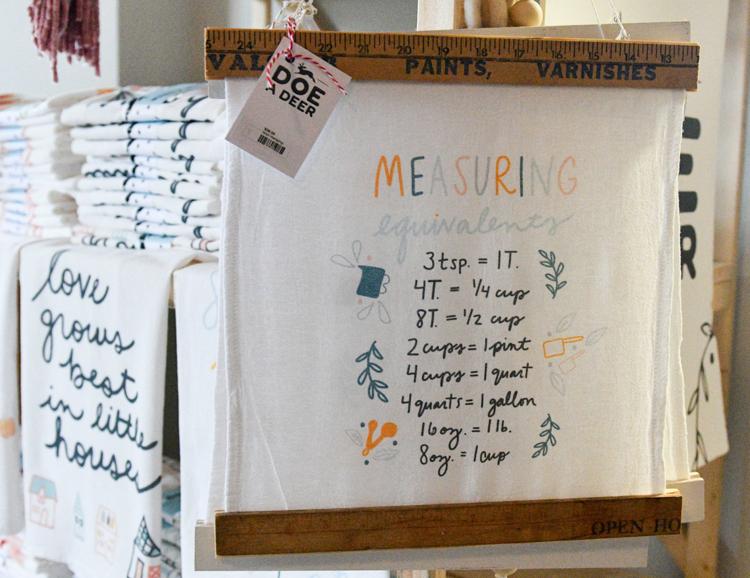 24 22 21 20 19 18 17 16 15 14 13
VAL PAINTS, VARNISHES
DOE
A DEER
MEASURING
equivalents
3tsp. = 1T.
4T. = 1/4 cup
8T. = 1/2 cup
2 cups = 1 pint
4 cups = 1 quart
4 quarts = 1 gallon
16oz. = 1 lb.
8oz. = 1cup
OPEN HO
love
grows
best
in little
houses